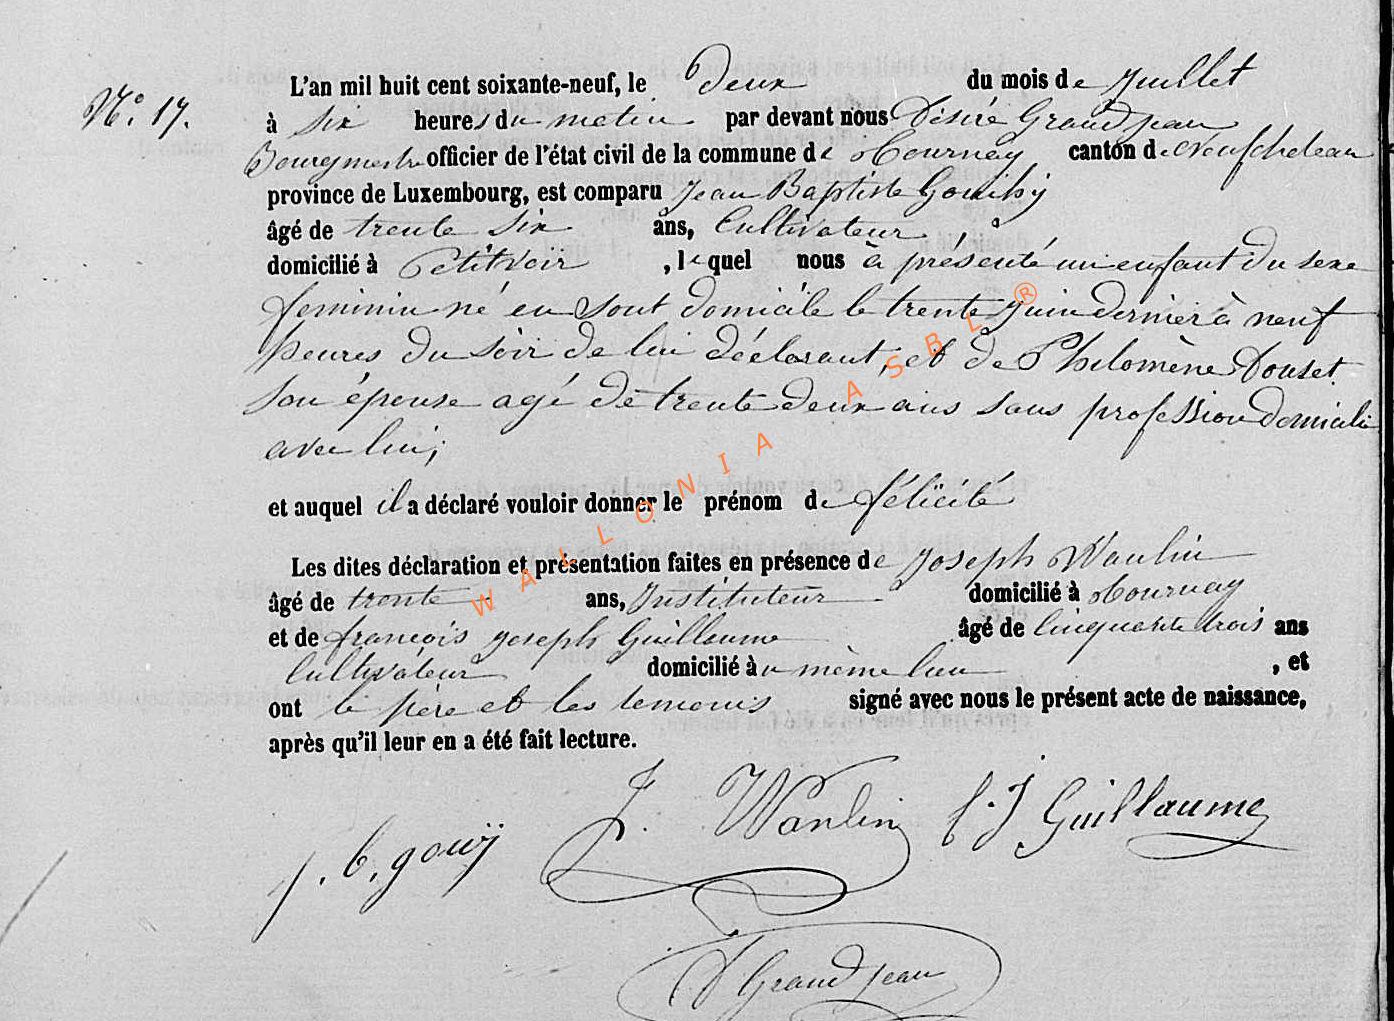 L'an mil huit cent soixante-neuf, le deux du mois de Juillet
N° 17.
à six heures du matin par devant nous Désiré Grandjean
Bourgmestre officier de l'état civil de la commune de Tournay, canton de Neufchateau
province de Luxembourg, est comparu Jean Baptiste
âgé de trente six ans, Cultivateur,
domicilié à Petitvoir, lequel nous à présenté un enfant du sexe
feminin né en sont domicile le trente juin dernier à neuf
heures du soir de lui déclarant, et de Philomène
son épouse agé de trente deux ans sans profession domicilié
avec lui;
et auquel il a déclaré vouloir donner le prénom de félicité
Les dites déclaration et présentation faites en présence de Joseph Wanlin
âgé de trente ans, Instituteur domicilié à Tournay
et de françois joseph Guillaume âgé de cinquante trois ans
Cultivateur domicilié au même lieu, et
ont le père et les temoins signé avec nous le présent acte de naissance,
après qu'il leur en a été fait lecture.
J. Wanlin f. J Guillaume
j. b. gouÿ
D Grandjean
WALLONIA ASBL ®